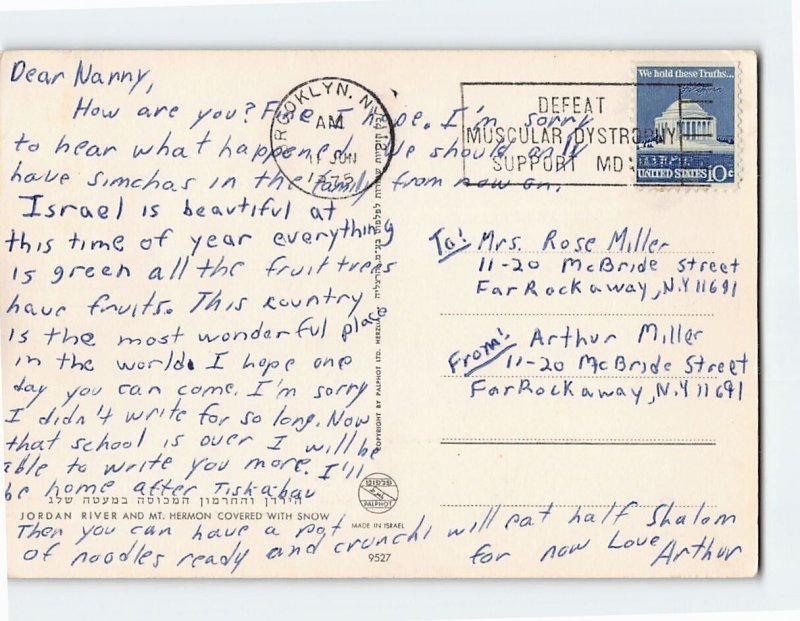 Dear Nanny,
How are you? Fine I hope. I'm sorry
to hear what happened, we should only
have simchas in the family from now on.
Israel is beautiful at
this time of year everything
is green all the fruit trees
have fruits. This country
is the most wonderful place
in the world. I hope one
day you can come. I'm sorry
I didn't write for so long. Now
that school is over I will be
able to write you more. I'll
be home after Tiskabau
הירדן והחרמון המכוסה במעטה שלג
JORDAN RIVER AND MT. HERMON COVERED WITH SNOW
Then you can have a pot
of noodles ready and crunchi will eat half Shalom
for now Love Arthur
BROOKLYN, N.Y.
AM
11 JUN
1975
DEFEAT
MUSCULAR DYSTROPHY
SUPPORT MD
We hold these Truths...
UNITED STATES 10c
To! Mrs. Rose Miller
11-20 McBride Street
Far Rockaway, N.Y 11691
From! Arthur Miller
11-20 McBride Street
Far Rockaway, N.Y 11691
COPYRIGHT BY PALPHOT LTD. HERZLIA
פלפוט
PALPHOT
MADE IN ISRAEL
9527